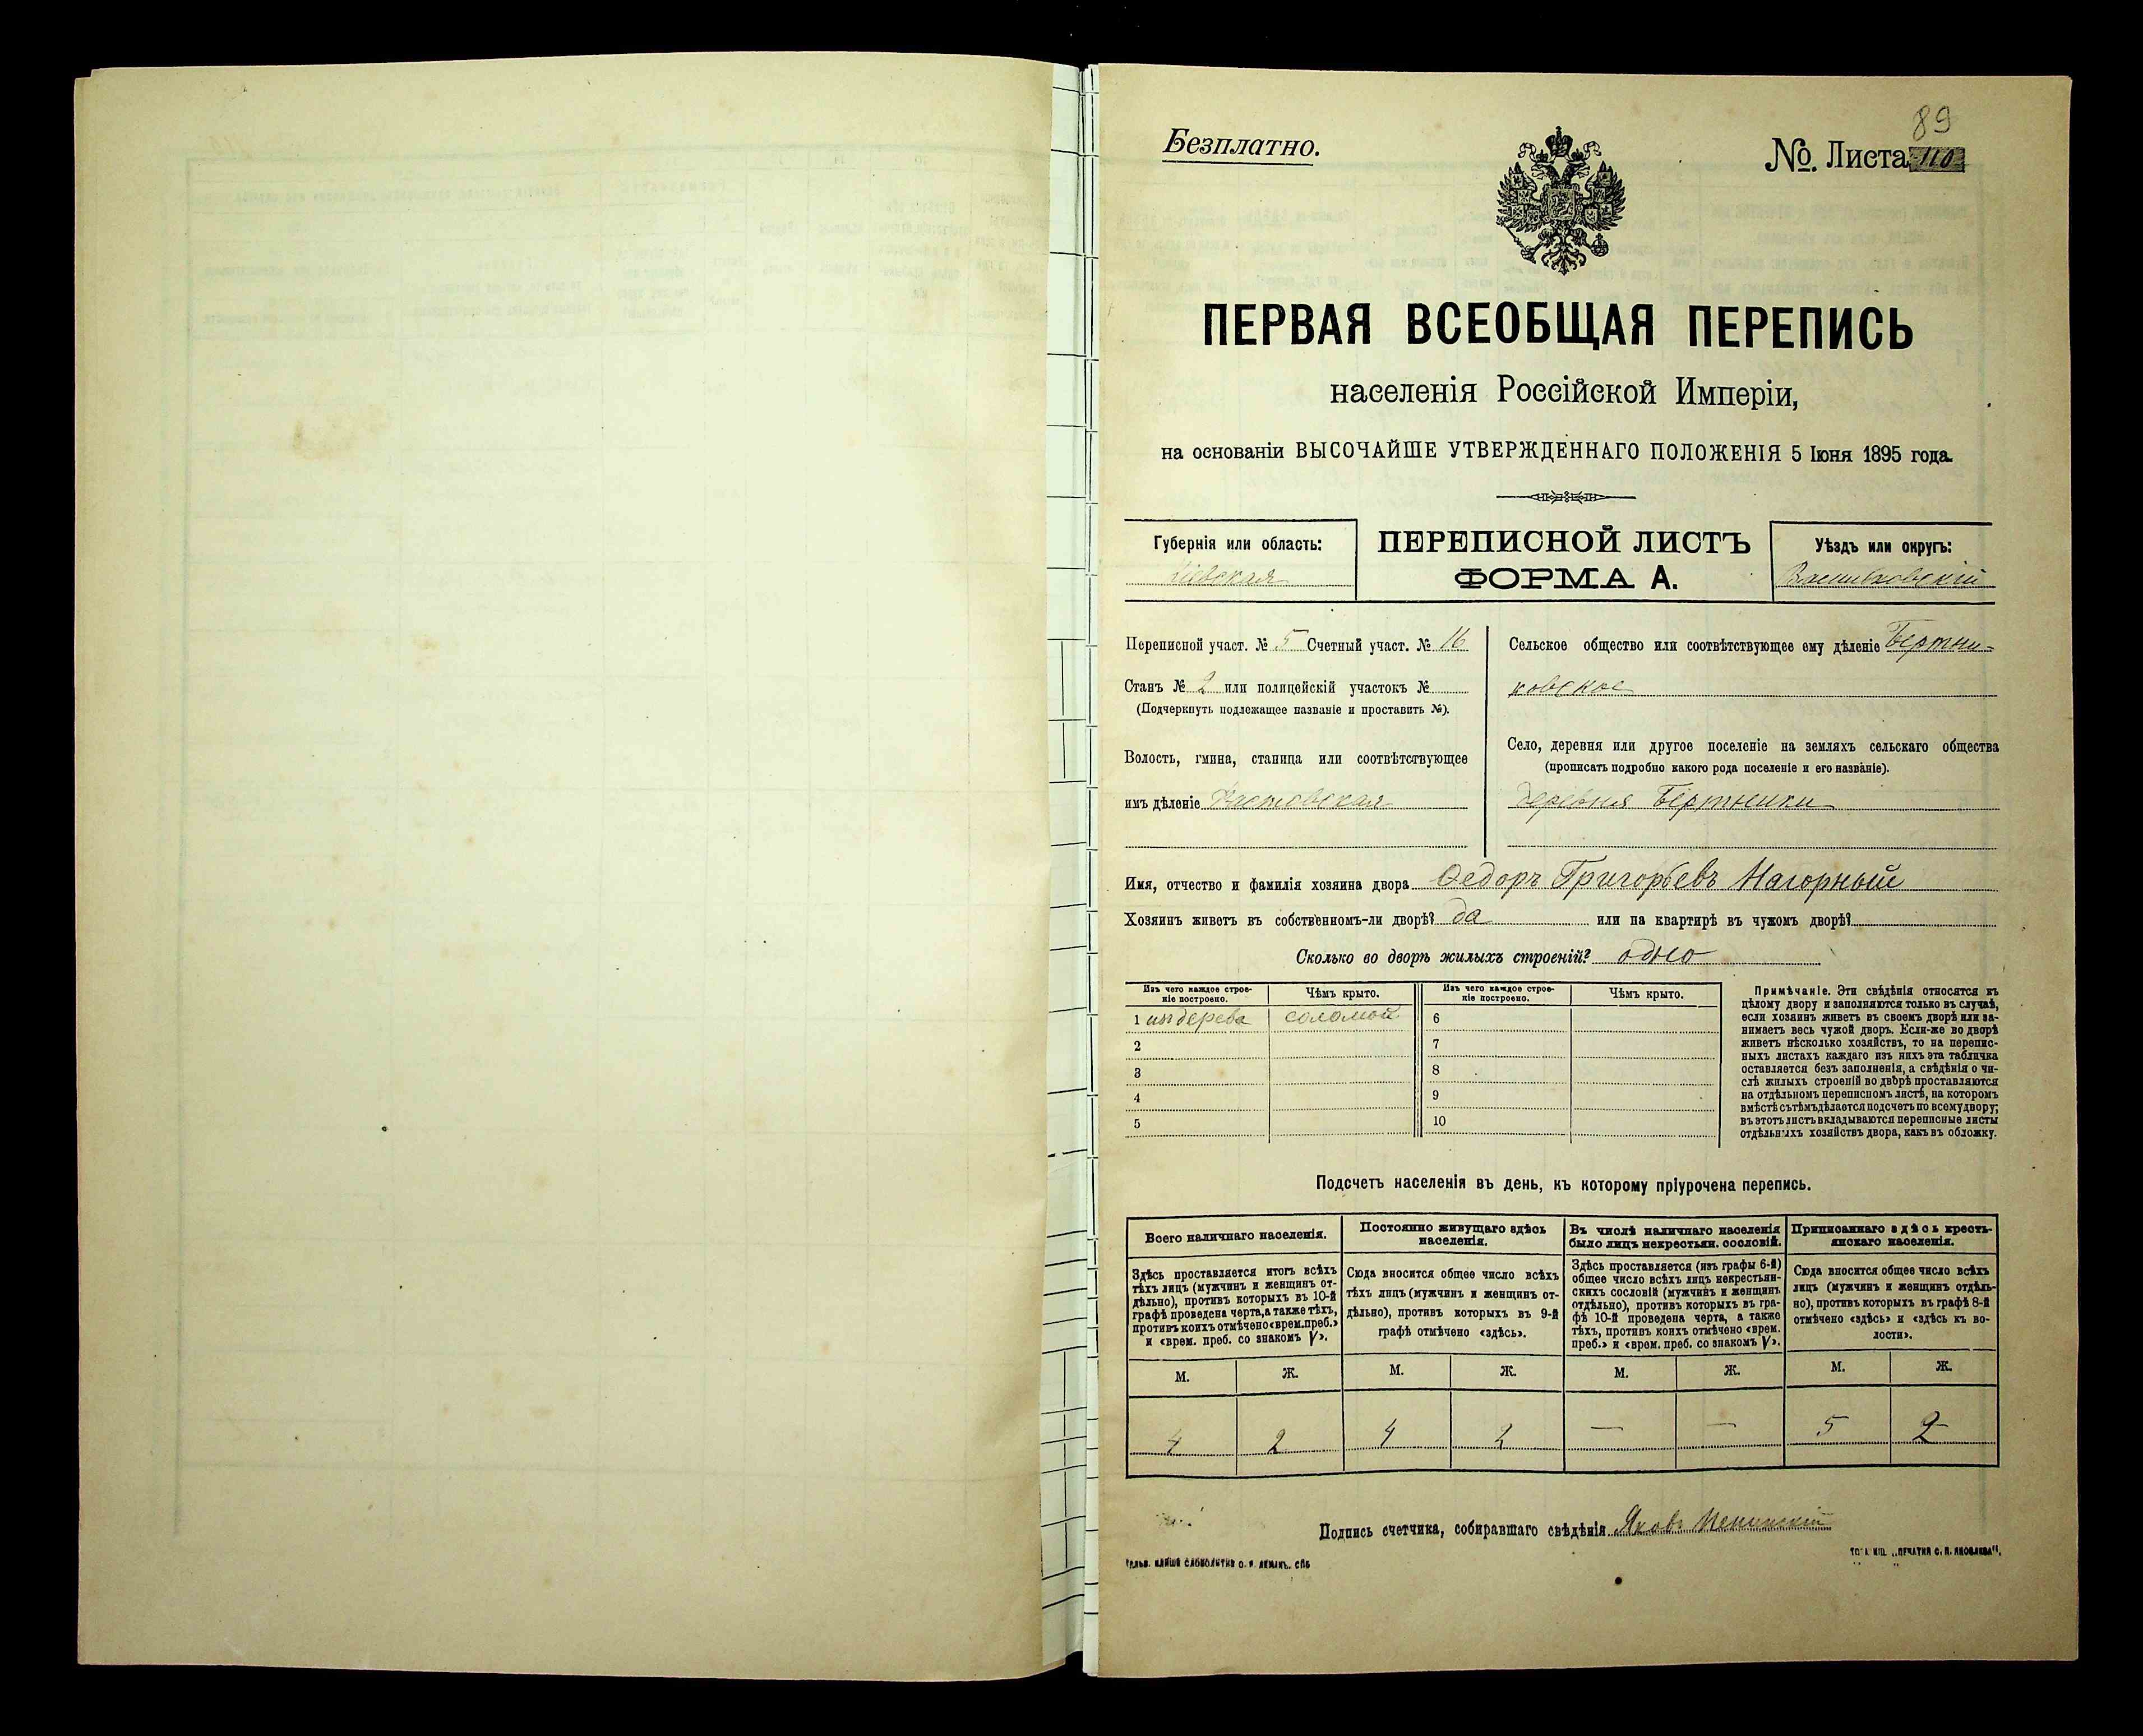 89
Безплатно.
№. Листа 110
ПЕРВАЯ ВСЕОБЩАЯ ПЕРЕПИСЬ
населенія Россійской Имперіи,
на основаніи ВЫСОЧАЙШЕ УТВЕРЖДЕННАГО ПОЛОЖЕНІЯ 5 Іюня 1895 года.
Губернія или область:
Кіевская
ПЕРЕПИСНОЙ ЛИСТЪ
ФОРМА А.
Уѣздъ или округъ:
Васильковскій
Переписной участ. № 5 Счетный участ. № 16
Станъ № 2 или полицейскій участокъ №
(Подчеркнуть подлежащее названіе и проставить №).
Волость, гмина, станица или соотвѣтствующее
имъ дѣленіе Хвастовская
Сельское общество или соотвѣтствующее ему дѣленіе Бертни-
ковское
Село, деревня или другое поселеніе на земляхъ сельскаго общества
(прописать подробно какого рода поселеніе и его названіе).
деревня Бертники
Имя, отчество и фамилія хозяина двора Ѳедоръ Григорьевъ Нагорный
Хозяинъ живетъ въ собственномъ-ли дворѣ? да или на квартирѣ въ чужомъ дворѣ?
Сколько во дворѣ жилыхъ строеній? одно
Изъ чего каждое строе-
ніе построено.
Чѣмъ крыто.
Изъ чего каждое строе-
ніе построено.
Чѣмъ крыто.
1 изъ дерева соломой 6
2 7
3 8
4 9
5 10
Примѣчаніе. Эти свѣдѣнія относятся къ
цѣлому двору и заполняются только въ случаѣ,
если хозяинъ живетъ въ своемъ дворѣ или за-
нимаетъ весь чужой дворъ. Если-же во дворѣ
живетъ нѣсколько хозяйствъ, то на перепис-
ныхъ листахъ каждаго изъ нихъ эта табличка
оставляется безъ заполненія, а свѣдѣнія о чи-
слѣ жилыхъ строеній во дворѣ проставляются
на отдѣльномъ переписномъ листѣ, на которомъ
вмѣстѣ съ тѣмъ дѣлается подсчетъ по всему двору;
въ этотъ листъ вкладываются переписные листы
отдѣльныхъ хозяйствъ двора, какъ въ обложку.
Подсчетъ населенія въ день, къ которому пріурочена перепись.
Всего наличнаго населенія.
Здѣсь проставляется итогъ всѣхъ
тѣхъ лицъ (мужчинъ и женщинъ от-
дѣльно), противъ которыхъ въ 10-й
графѣ проведена черта, а также тѣхъ,
противъ коихъ отмѣчено «врем. преб.»
и «врем. преб. со знакомъ V».
Постоянно живущаго здѣсь
населенія.
Сюда вносится общее число всѣхъ
тѣхъ лицъ (мужчинъ и женщинъ от-
дѣльно), противъ которыхъ въ 9-й
графѣ отмѣчено «здѣсь».
Въ числѣ наличнаго населенія
было лицъ некрестьян. сословій.
Здѣсь проставляется (изъ графы 6-й)
общее число всѣхъ лицъ некрестьян-
скихъ сословій (мужчинъ и женщинъ
отдѣльно), противъ которыхъ въ гра-
фѣ 10-й проведена черта, а также
тѣхъ, противъ коихъ отмѣчено «врем.
преб.» и «врем. преб. со знакомъ V».
Приписаннаго здѣсь кресть-
янскаго населенія.
Сюда вносится общее число всѣхъ
лицъ (мужчинъ и женщинъ отдѣль-
но), противъ которыхъ въ графѣ 8-й
отмѣчено «здѣсь» и «здѣсь къ во-
лости».
М. Ж. М. Ж. М. Ж. М. Ж.
4 2 4 2 — — 5 2
Подпись счетчика, собиравшаго свѣдѣнія Яковъ